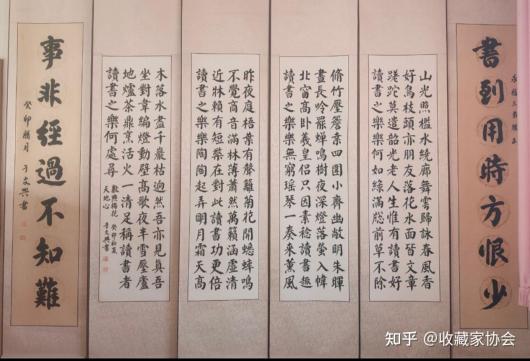 書到用時方恨少
山光照檻水繞廊舞雩歸詠春風香
好鳥枝頭亦朋友落花水面皆文章
蹉跎莫遣韶光老人生惟有讀書好
讀書之樂樂何如綠滿窗前草不除
脩竹壓簷桑四圍小齋幽敞明朱暉
晝長吟罷蟬鳴樹夜深燈落螢入幃
北窗高臥羲皇侶只因素稔讀書趣
讀書之樂樂無窮瑤琴一奏來薰風
昨夜庭梧葉有聲籬菊花開蟋蟀鳴
不覺商音滿林薄蕭然萬籟涵虛清
近牀賴有短檠在對此讀書功更倍
讀書之樂樂陶陶起弄明月霜天高
木落水盡千巖枯迥然吾亦見真吾
坐對韋編燈動壁高歌夜半雪壓廬
地爐茶鼎烹活火一清足稱讀書者
讀書之樂何處尋
數點梅花
天地心
癸卯初夏
于文興書
事非經過不知難
癸卯臘月 于文興書
知乎 @收藏家协会